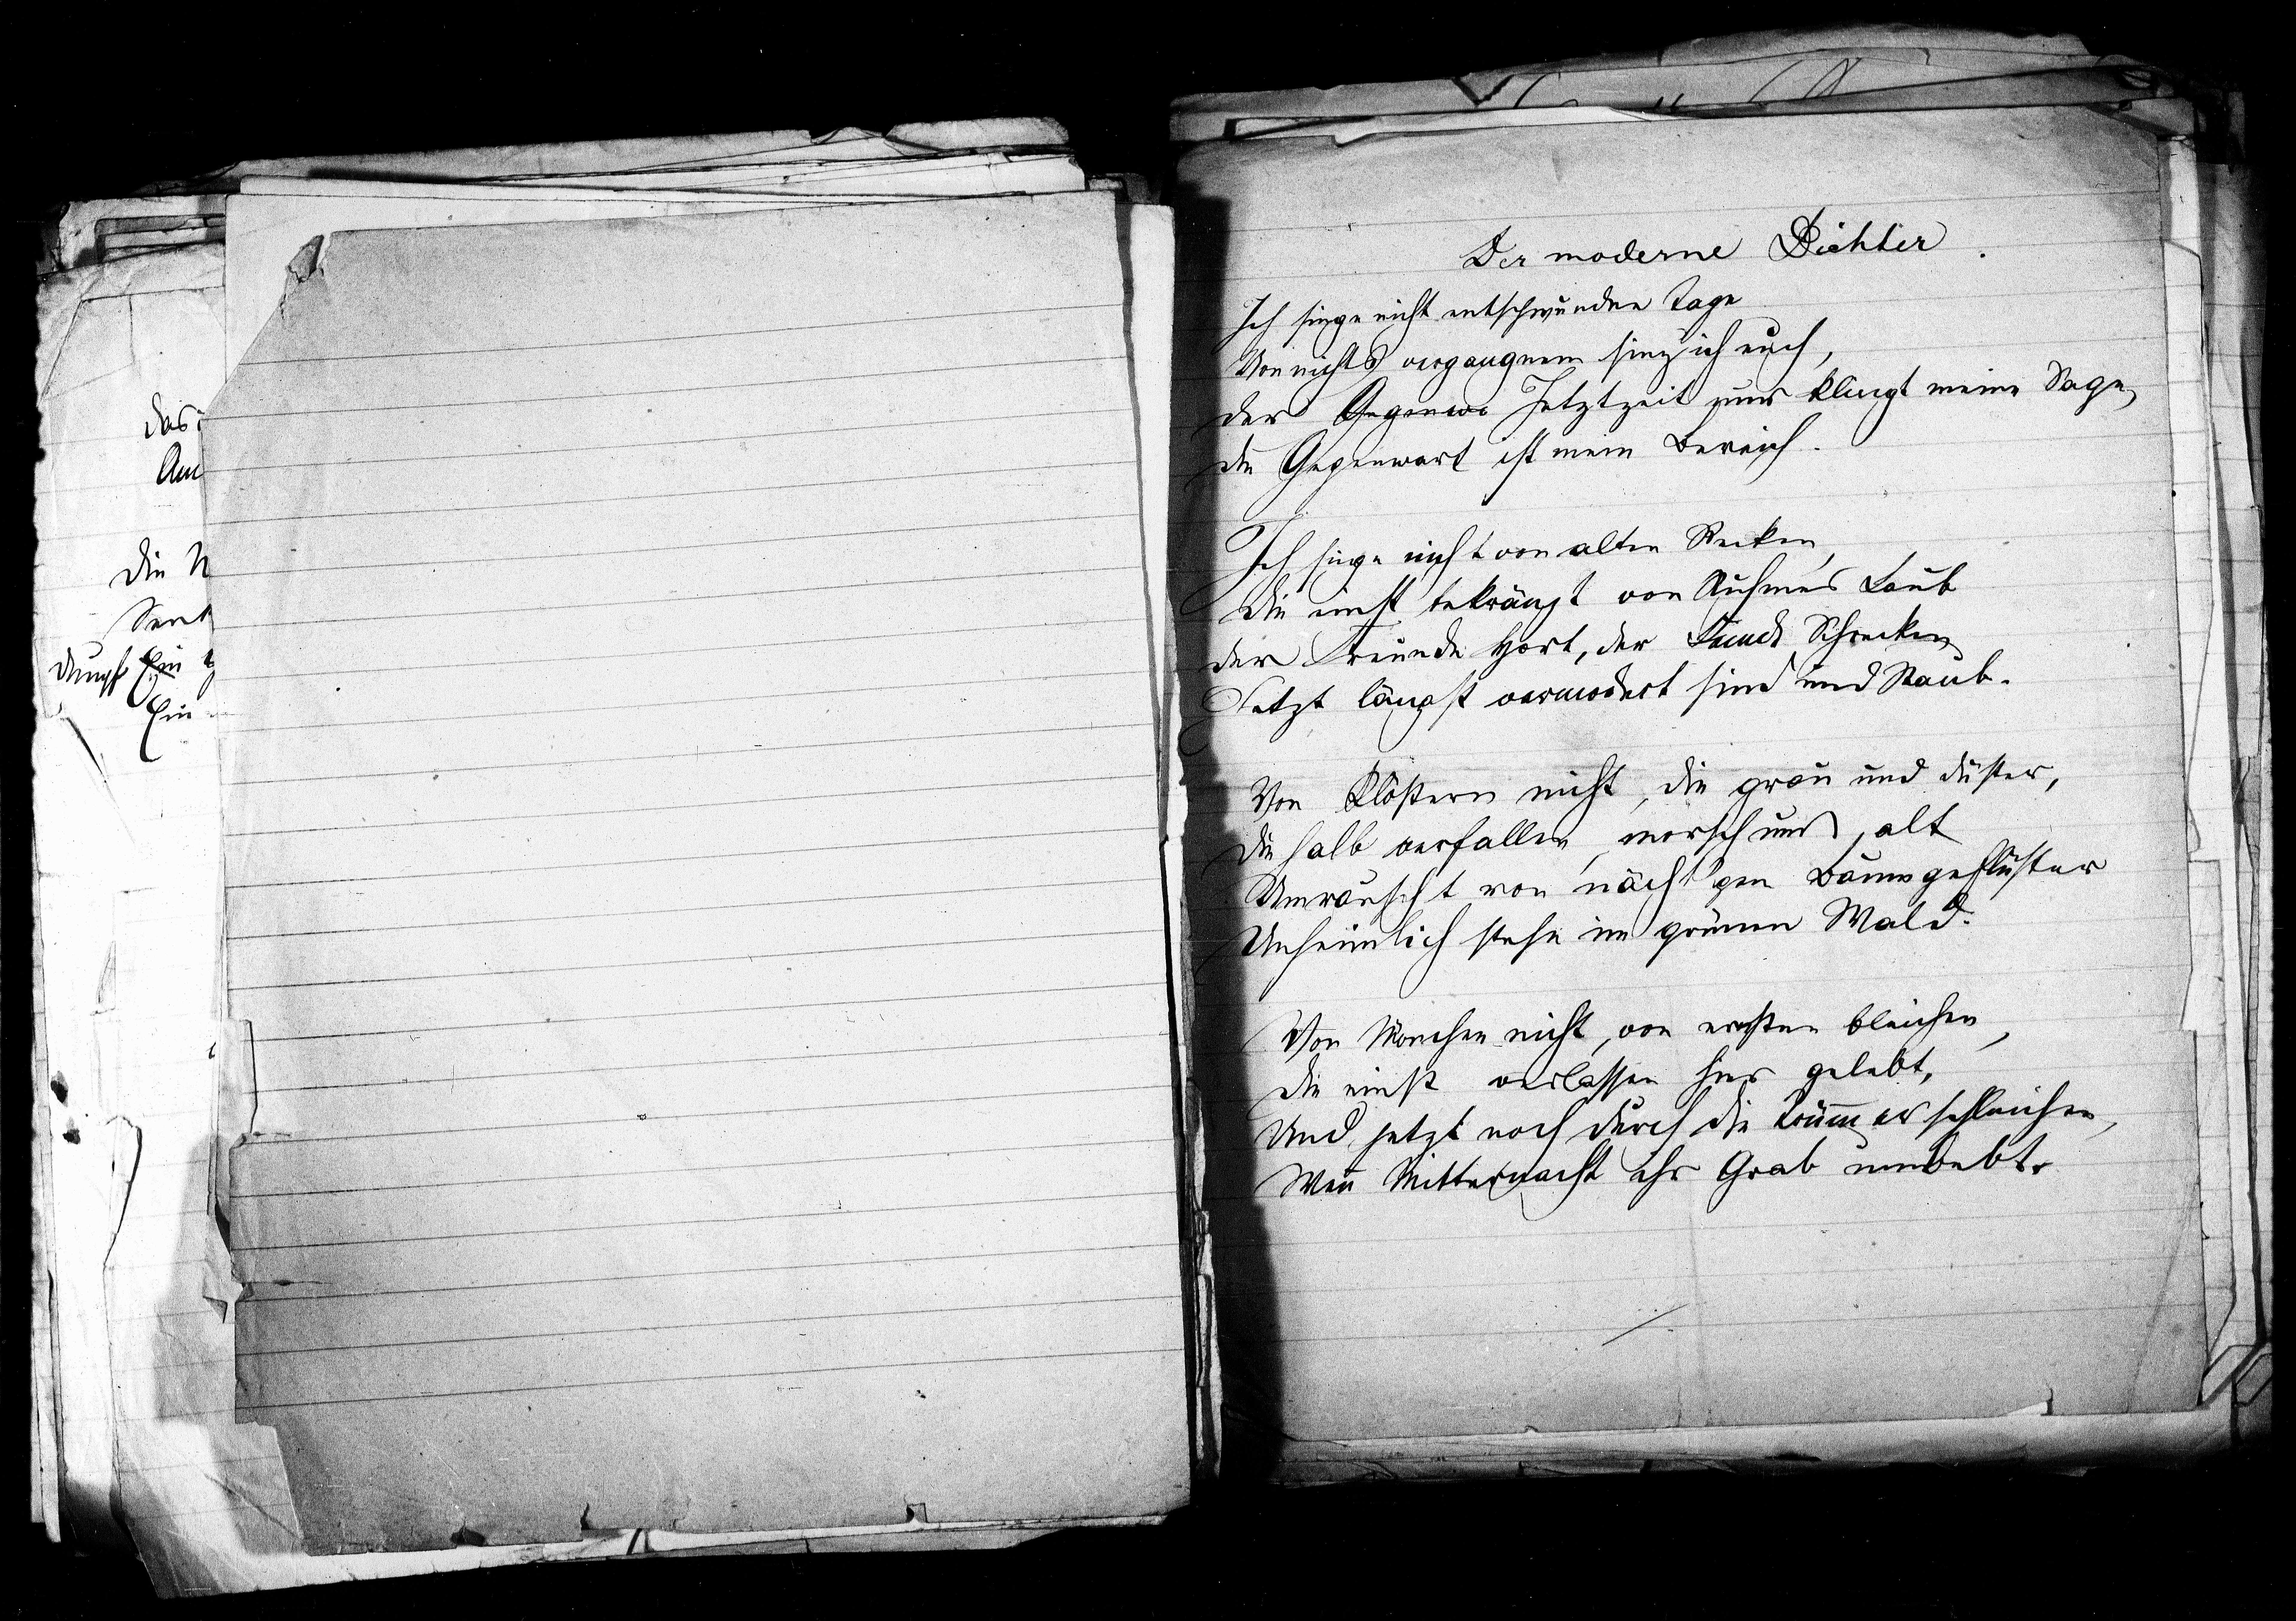 das
Am
Die
Dumpf Ein
Ein
Der moderne Dichter.
Ich singe nicht entschwundne Tage
Von nichts vergangnem sing ich euch,
Der Gegenwa Jetztzeit nur klingt meine Sage,
Die Gegenwart ist mein Bereich.
Ich singe nicht von alten Recken,
Die einst bekränzt von Ruhmes Laub
Der Freunde Hort, der Feinde Schrecken
Jetzt längst vermodert sind und Staub.
Von Klöstern nicht, die grau und düster,
Die halb verfallen, morsch und alt
Umrauscht von nächt'gen Baumgeflüster
Unheimlich stehn im grünen Wald.
Von Mönchen nicht, von ernsten bleichen,
Die einst verlassen hier gelebt,
Und jetzt noch durch die Trümmer schleichen,
Wenn Mitternacht ihr Grab umwebt.